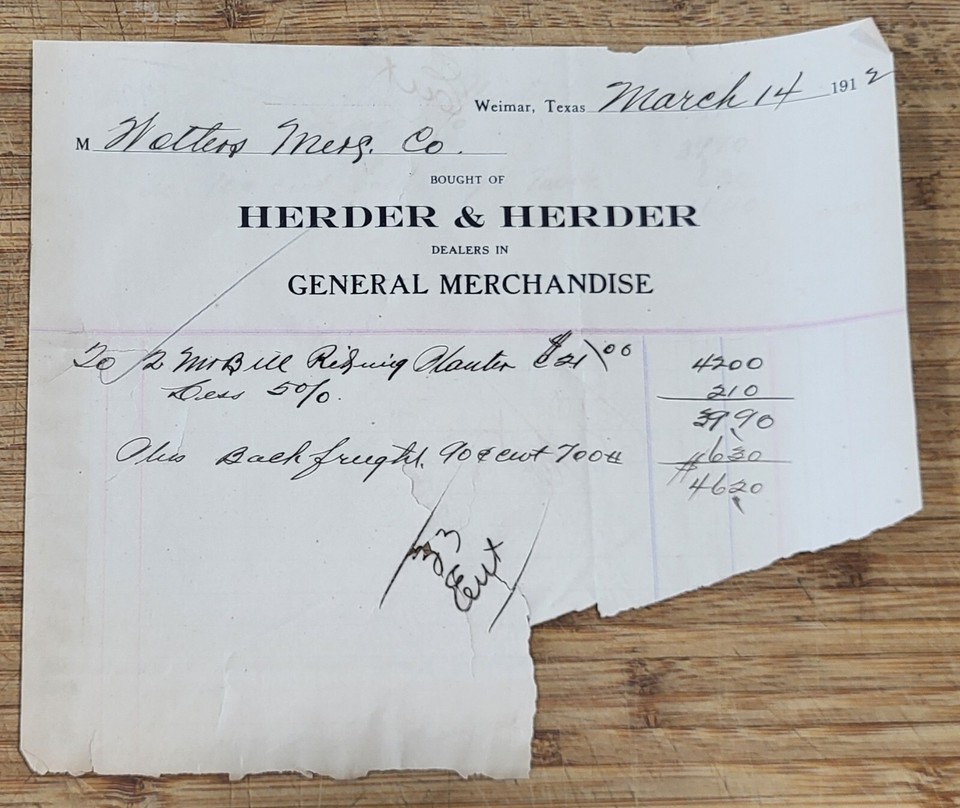 Weimar, Texas March 14 1912
M Wolters Merg. Co.
BOUGHT OF
HERDER & HERDER
DEALERS IN
GENERAL MERCHANDISE
To 2 Riding Planter @ $21 00 4200
Less 5%. 210
3990
Plus Back freight. 90¢ cwt 700# 630
$4620
Ent